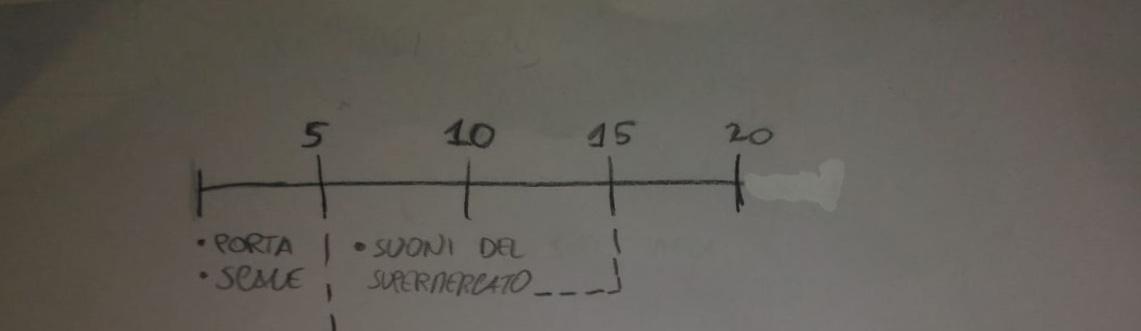 5 10 15 20
• PORTA
• SCALE
• SUONI DEL
SUPERMERCATO